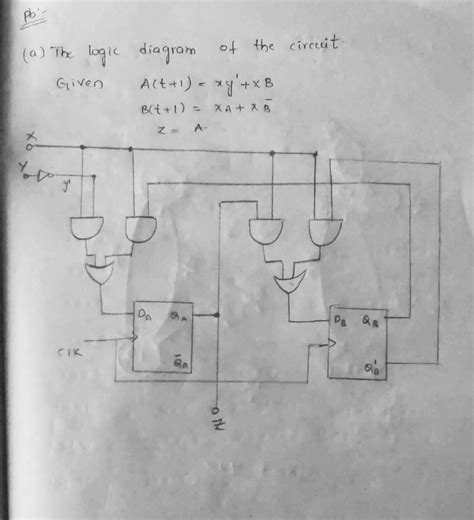 Pb:-
(a) The logic diagram of the circuit
Given A(t+1) = xy' + xB
B(t+1) = xA + xB̅
Z = A.
X
Y
y'
DA QA
Q̅A
CLK
DB QB
QB'
Z